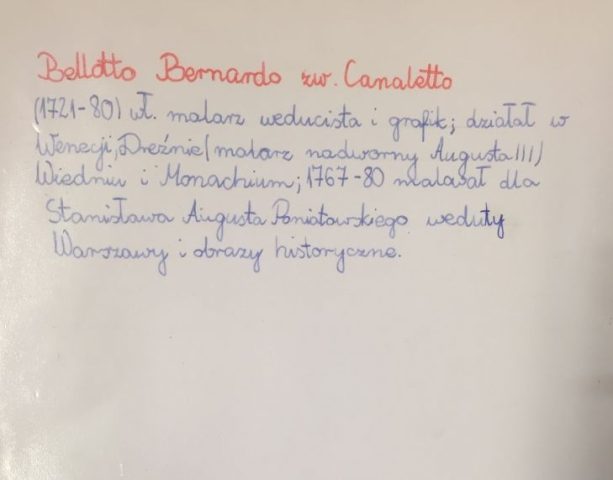 Bellotto Bernardo zw. Canaletto
(1721-80) wł. malarz weducista i grafik; działał w
Wenecji, Dreźnie (malarz nadworny Augusta III)
Wiedniu i Monachium; 1767-80 malował dla
Stanisława Augusta Poniatowskiego weduty
Warszawy i obrazy historyczne.